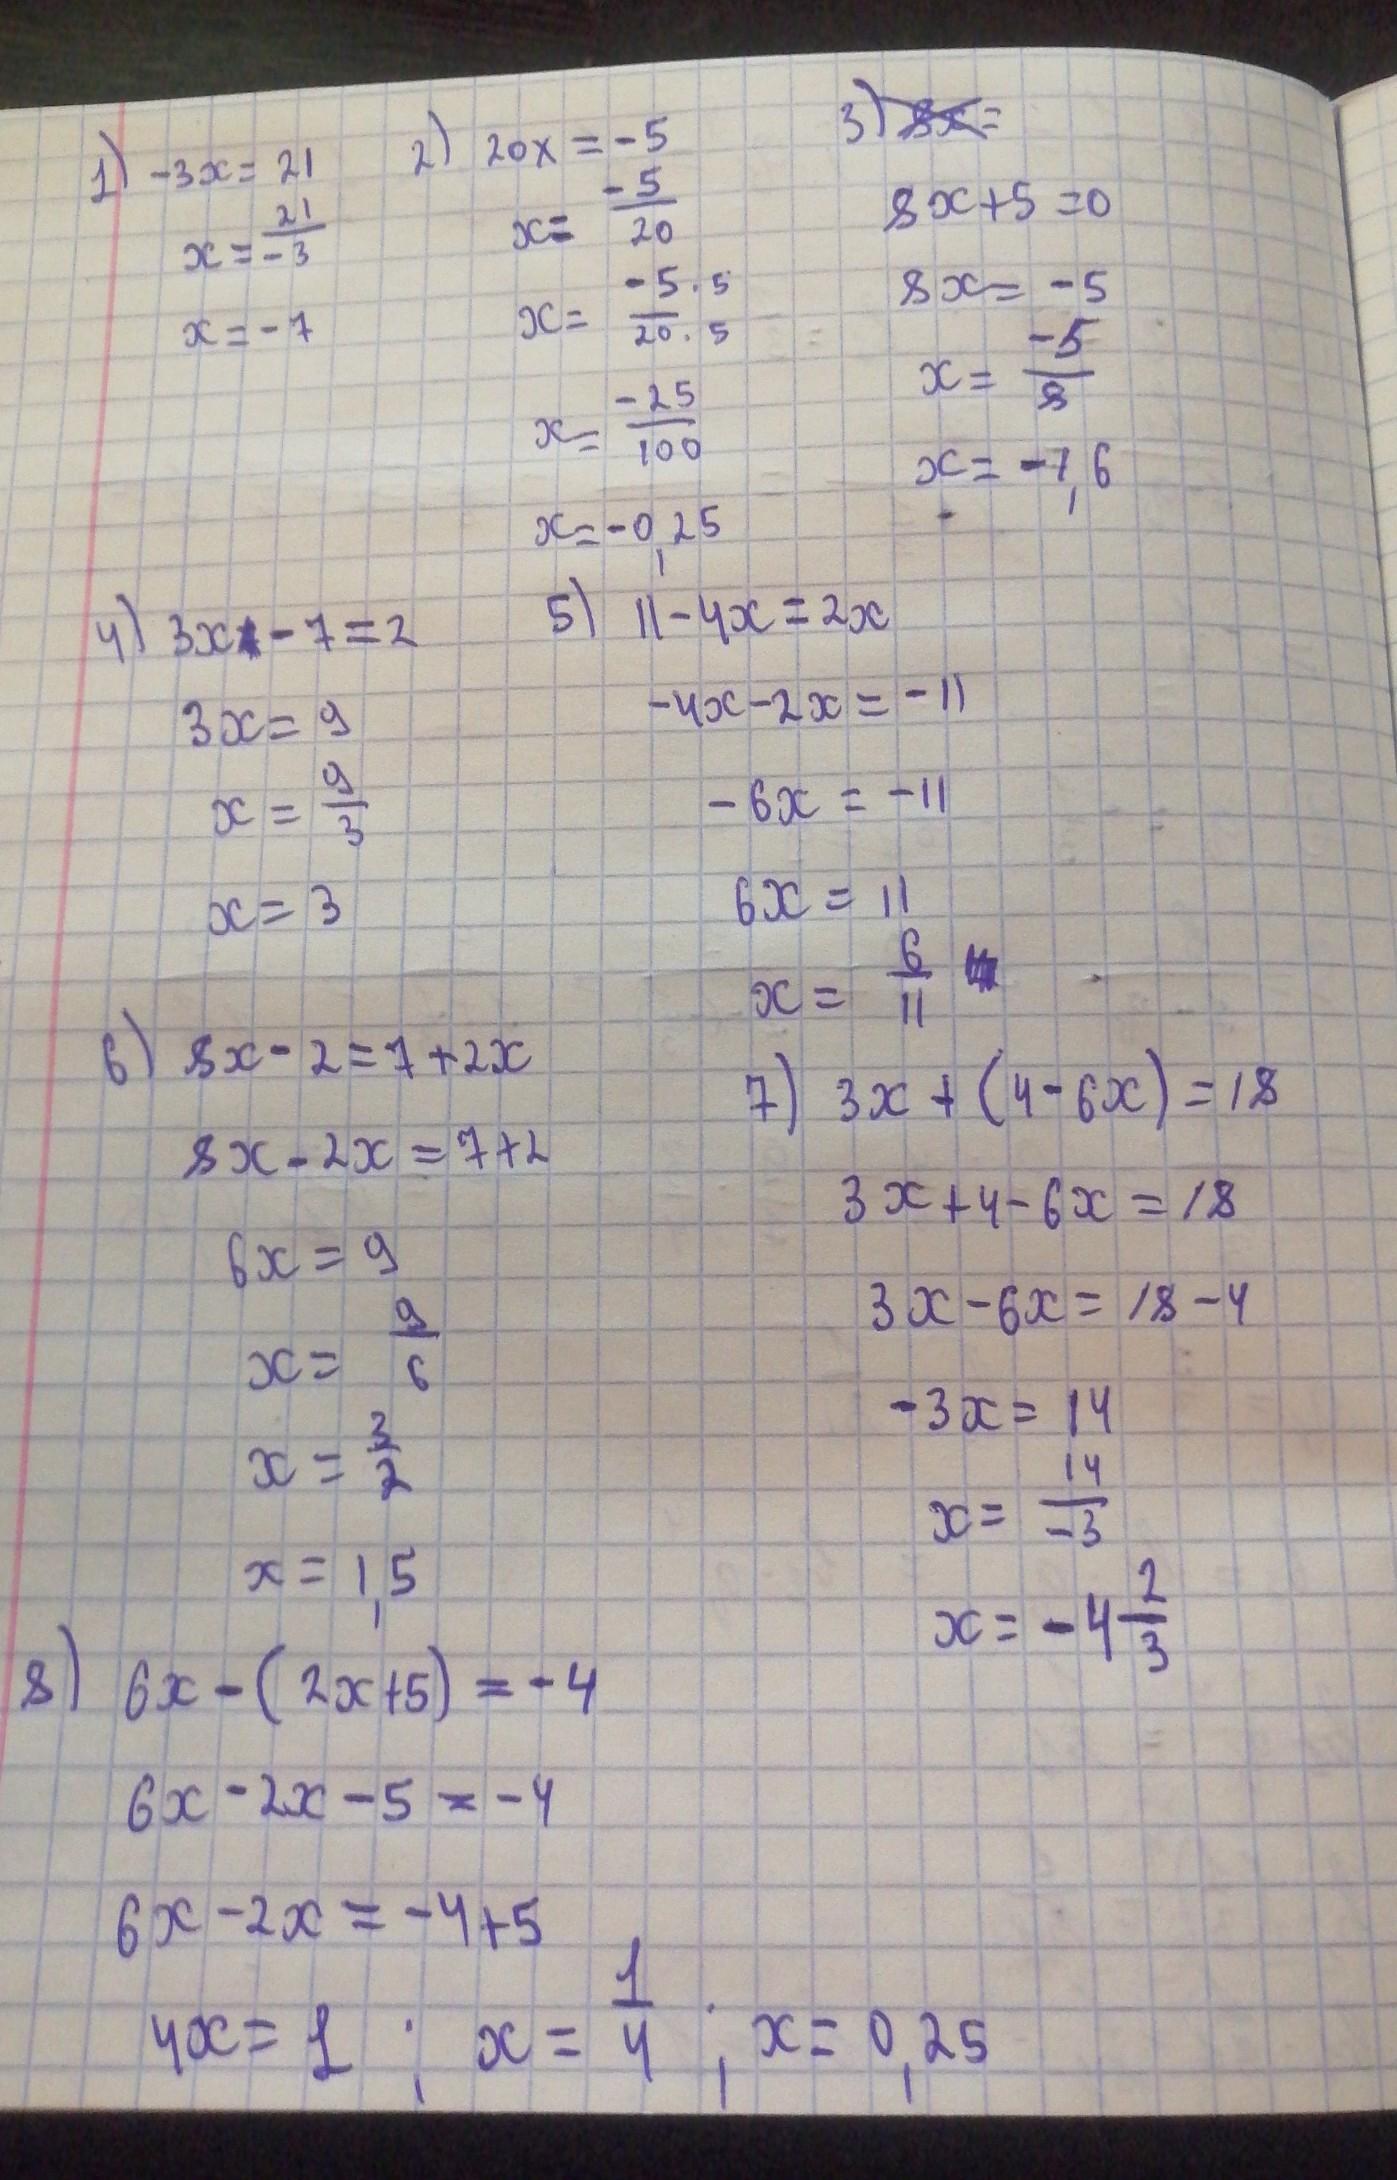 1) -3x = 21
x = 21/-3
x = -7
2) 20x = -5
x = -5/20
x = -5·5/20·5
x = -25/100
x = -0,25
3) 8x=
8x+5=0
8x = -5
x = -5/8
x = -1,6
4) 3x - 7 = 2
3x = 9
x = 9/3
x = 3
5) 11 - 4x = 2x
-4x - 2x = -11
-6x = -11
6x = 11
x = 6/11
6) 8x - 2 = 7 + 2x
8x - 2x = 7 + 2
6x = 9
x = 9/6
x = 3/2
x = 1,5
7) 3x + (4 - 6x) = 18
3x + 4 - 6x = 18
3x - 6x = 18 - 4
-3x = 14
x = 14/-3
x = -4 2/3
8) 6x - (2x+5) = -4
6x - 2x - 5 = -4
6x - 2x = -4+5
4x = 1 ; x = 1/4 ; x = 0,25